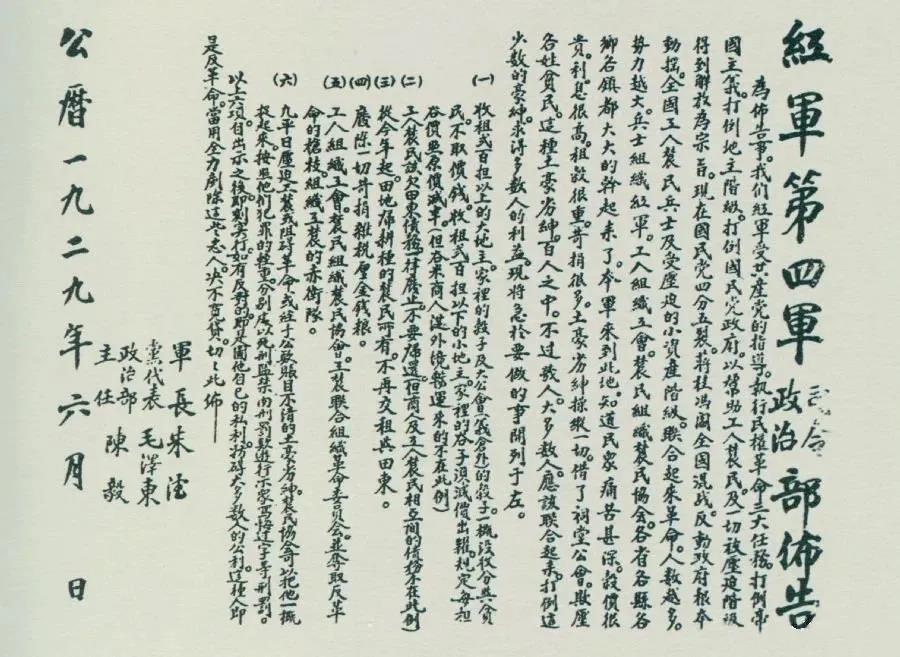 紅軍第四軍司令政治部佈告
為佈告事。我們紅軍受共產党的指導。執行民權革命三大任務。打倒帝
國主義。打倒地主階級。打倒國民党政府。以幫助工人農民及一切被壓迫階級
得到解放為宗旨。現在國民党四分五裂。蔣桂馮閻全國混战。反動政府根本
動摇。全國工人農民兵士及受壓迫的小資產階級。联合起來革命。人数越多。
势力越大。兵士組織紅軍。工人組織工會。農民組織農民協会。各省各縣各
鄉各镇都大大的幹起来了。本軍来到此地。知道民衆痛苦甚深。穀價很
貴。利息很高。租穀很重。苛捐很多。土豪劣紳操縱一切。借了祠堂公會。欺壓
各姓貧民。這種土豪劣紳。百人之中。不过数人。大多数人應該联合起来。打倒這
少数的豪紳。求得多数人的利益。現將急於要做的事開列于左。
(一) 收租弍百担以上的大地主。家裡的穀子及大公會(義倉外)的穀子。一概没收分與貧
民。不取價钱。收租弍百担以下的小地主。家裡的谷子。須减價出糶。規定每担
谷價照原價减半。(但谷米商人從外境辦運来的不在此例)
(二) 工人農民該欠田東債務。一律廢止。不要歸還。(但商人及工人農民相互間的債務不在此例)
(三) 從今年起。田地歸耕種的農民所有。不再交租與田東。
(四) 廢除一切苛捐雜税厘金钱粮。
(五) 工人組織工會。農民組織農民協會。工農联合組織革命委員会。並奪取反革
命的槍枝。組織工農的赤衛隊。
(六) 凡平日壓迫工農或阻碍革命。或經手公款賬目不清的土豪劣紳。農民協会可以把他一概
捉起来。按照他們犯罪的輕重。分别處以死刑監禁肉刑罰款遊行示衆寫悔过字等刑罰。
以上六項。自出示之後。即刻实行。如有反對的。即是圖他自己的私利。妨碍大多数人的公利。這種人即
是反革命。當用全力剷除這些恶人。决不寬貸。切切此佈——
軍長 朱德
党代表 毛澤東
政治部主任 陳毅
公曆一九二九年六月 日